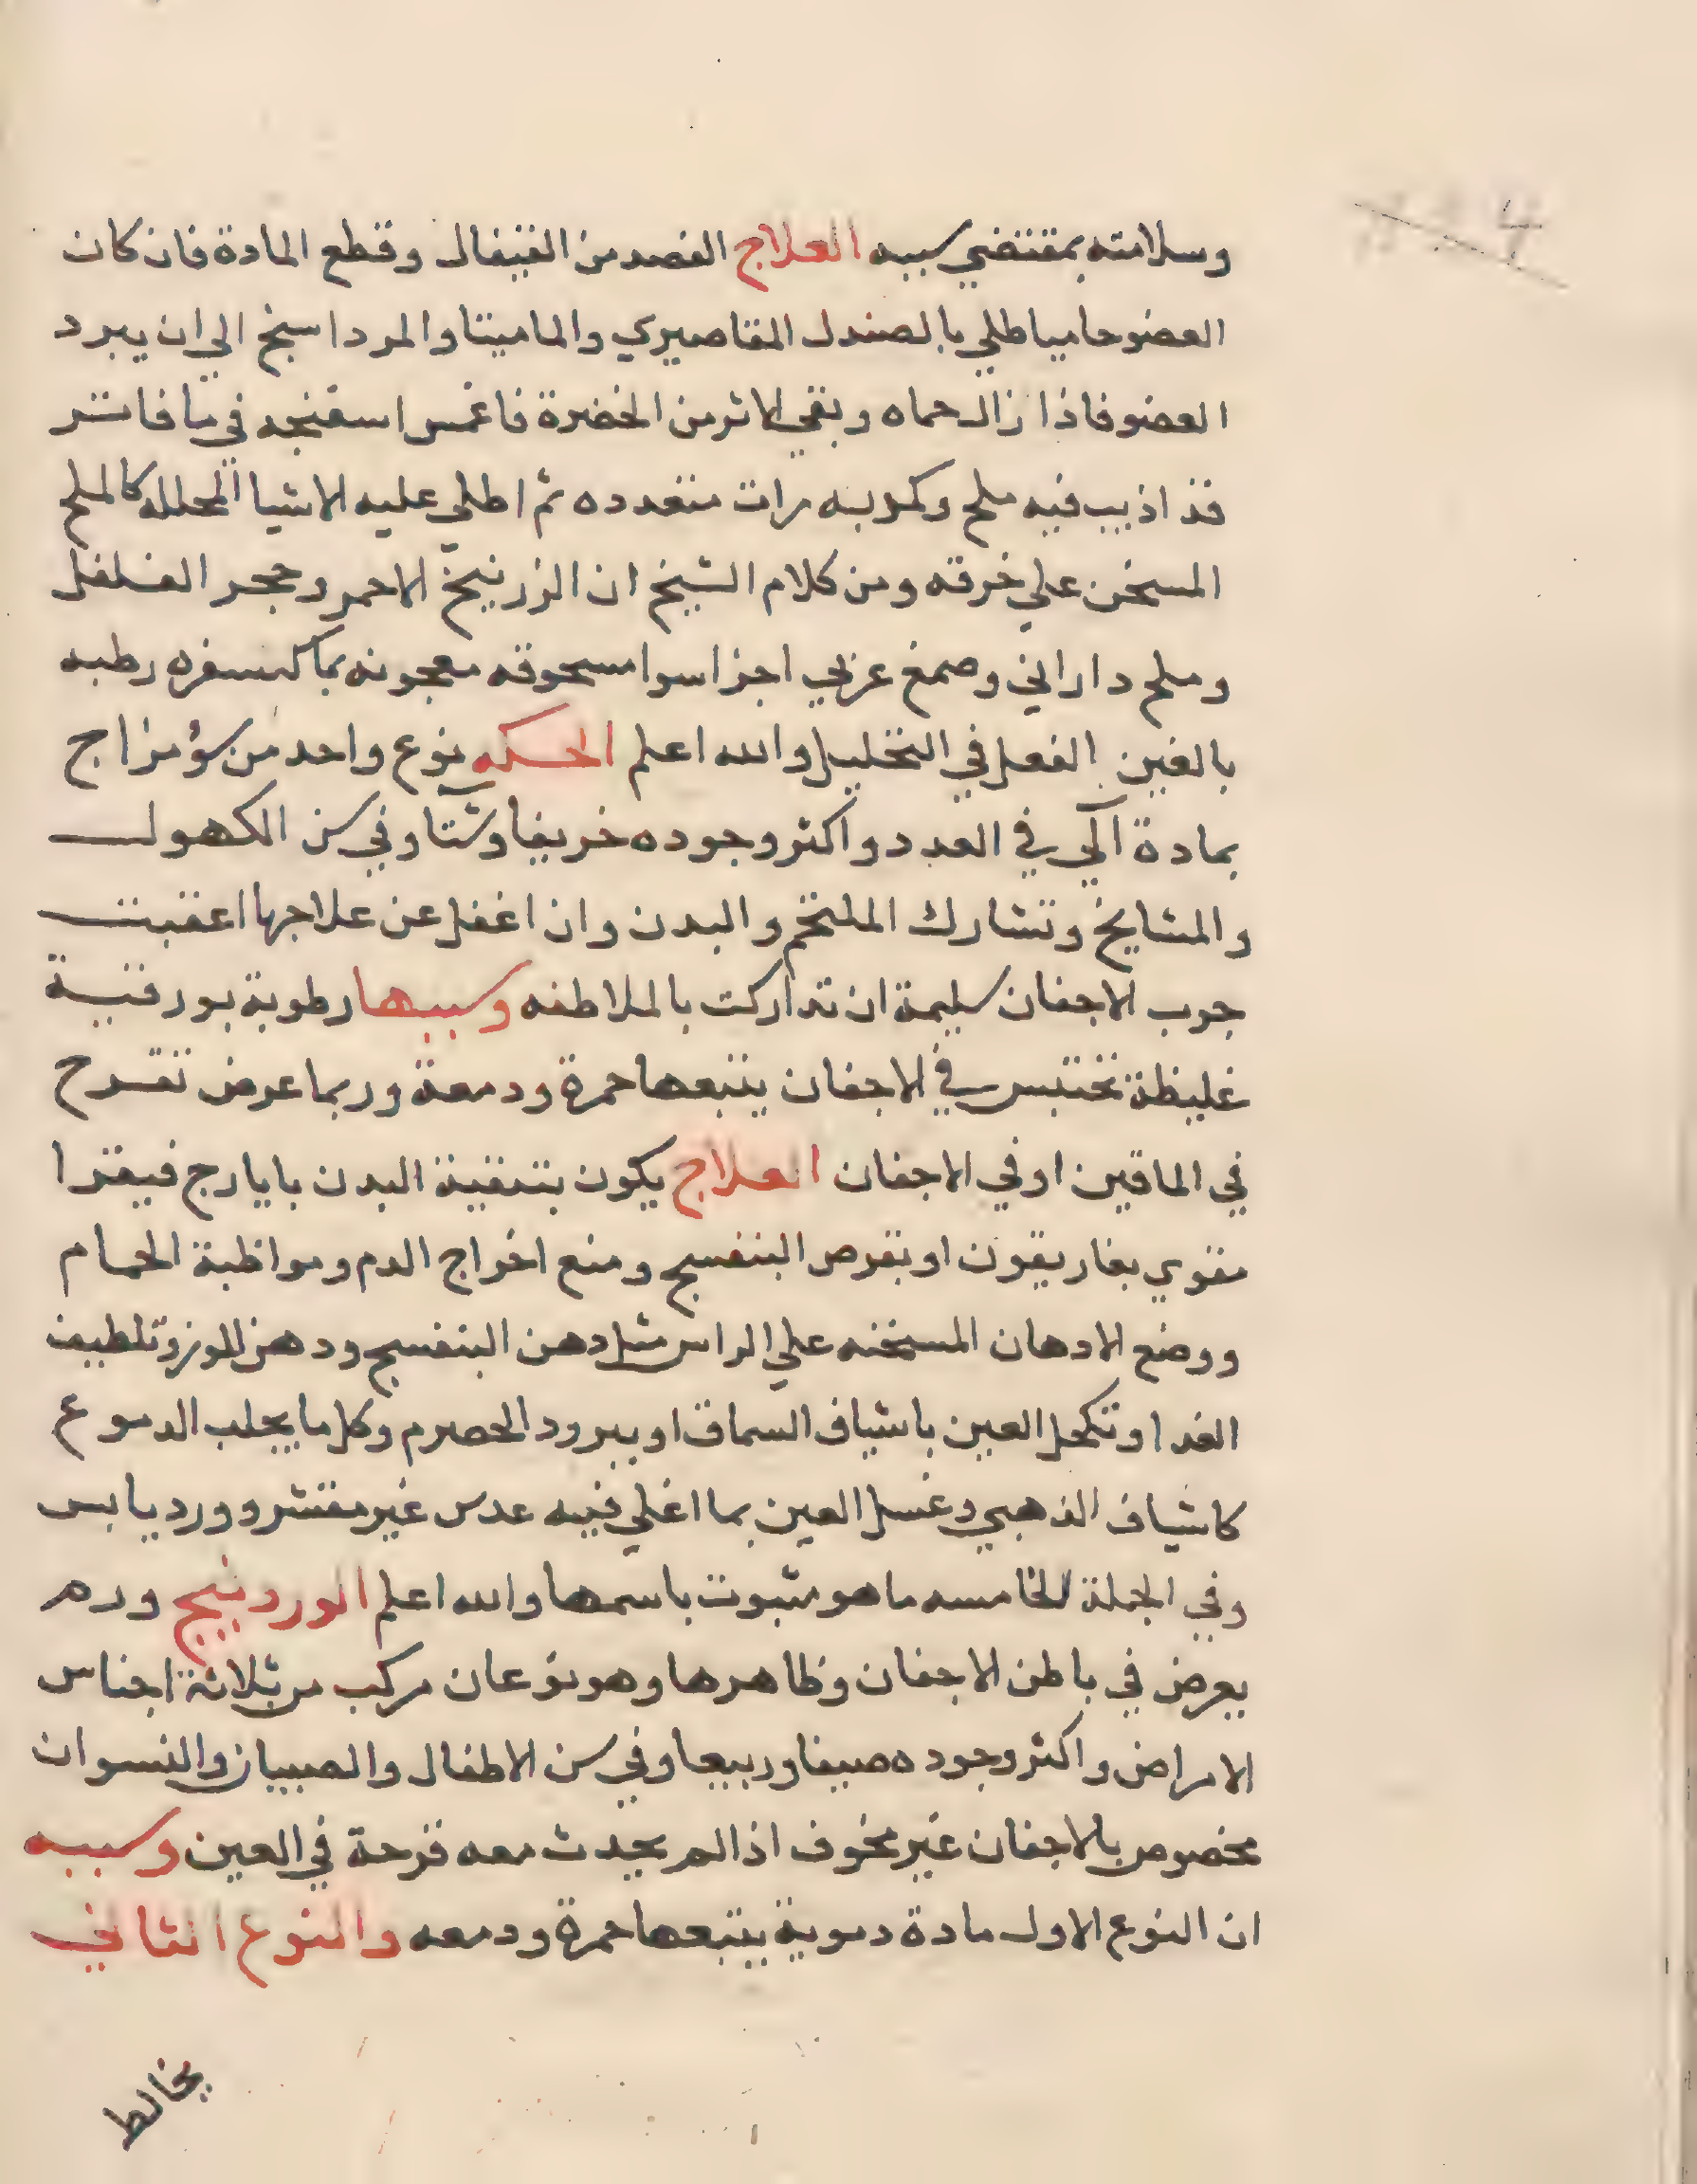 وسلامته بمقتضي سببه العلاج الفصد من القيفال وقطع المادة فان كان
العضو حاميا طلي بالصندل المقاصيري والماميتا والمرداسنج الي ان يبرد
العضو فاذا زال حماه وبقي الاثر من الخضرة فاغمس اسفنجه في ما فاتر
قد اذيب فيه ملح وكمد به مرات متعدده ثم اطلي عليه الاشيا المحلله كالملح
المسخن علي خرقه ومن كلام الشيخ ان الزرنيخ الاحمر وحجر الفلفل
وملح داراني وصمغ عربي اجزا سوا مسحوقه معجونه بما كسفره رطبه
بالغين الفعل في التحليل والله اعلم الحكه نوع واحد من سؤ مزاج
بمادة آلي في العدد واكثر وجوده خريفا وشتا وفي سن الكهول
والمشايخ وتشارك الملتحم والبدن وان اغفل عن علاجها اعقبت
جرب الاجفان سليمة ان تداركت بالملاطفه وسببها رطوبة بورقية
غليظة تحتبس في الاجفان يتبعها حمرة ودمعة وربما عرض تقرح
في الماقين او في الاجفان العلاج يكون بتنقية البدن بايارج فيقرا
مقوي بغاريقون او بقرص البنفسج ومنع اخراج الدم ومواظبة الحمام
ووضع الادهان المسخنه علي الراس مثل دهن البنفسج ودهن اللوز وتلطيف
الغدا وتكحل العين باشياف السماق او ببرود الحصرم وكل ما يجلب الدموع
كاشياف الذهبي وغسل العين بما اغلي فيه عدس غير مقشر وورد يابس
وفي الجملة الخامسه ما هو مثبوت باسمها والله اعلم الوردينج ورم
يعرض في باطن الاجفان وظاهرها وهو نوعان مركب من ثلاثة اجناس
الامراض واكثر وجوده صيفا وربيعا وفي سن الاطفال والصبيان والنسوان
مخصوص بالاجفان غير مخوف اذا لم يحدث معه قرحة في العين وسببه
ان النوع الاول مادة دموية يتبعها حمرة ودمعه والنوع الثاني
يخالط